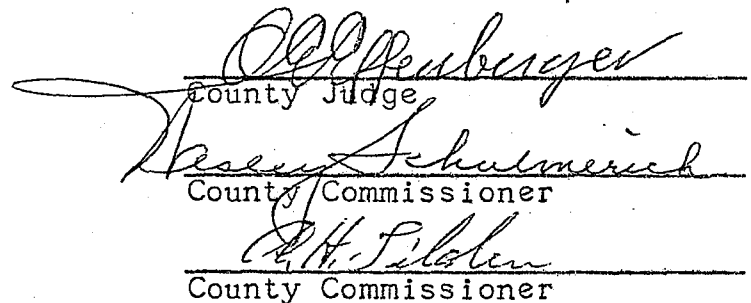 Effenberger
County Judge
Wesley Schulmerich
County Commissioner
County Commissioner